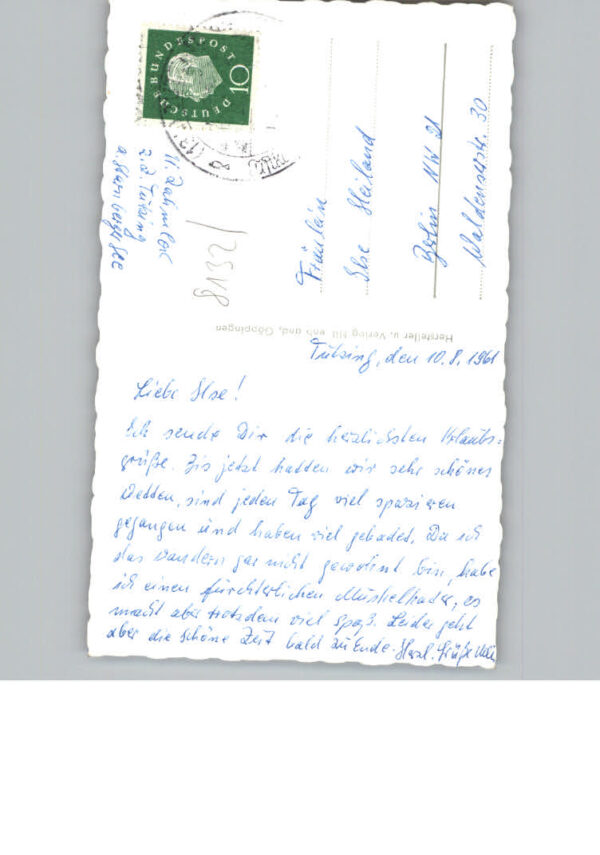 DEUTSCHE BUNDESPOST
10
z. Z. Tutzing
a. Starnberger See
Fräulein
Ilse Heiland
Berlin NW 21
Waldenserstr. 30
Hersteller u. Verlag
Göppingen
Tutzing, den 10.8.1961
Liebe Ilse!
Ich sende Dir die herzlichsten Urlaubs-
grüße. Bis jetzt hatten wir sehr schönes
Wetter, sind jeden Tag viel spazieren
gegangen und haben viel gebadet. Da ich
das Wandern gar nicht gewohnt bin, habe
ich einen fürchterlichen Muskelkater, es
macht aber trotzdem viel Spaß. Leider geht
aber die schöne Zeit bald zu Ende. Herzl. Grüße